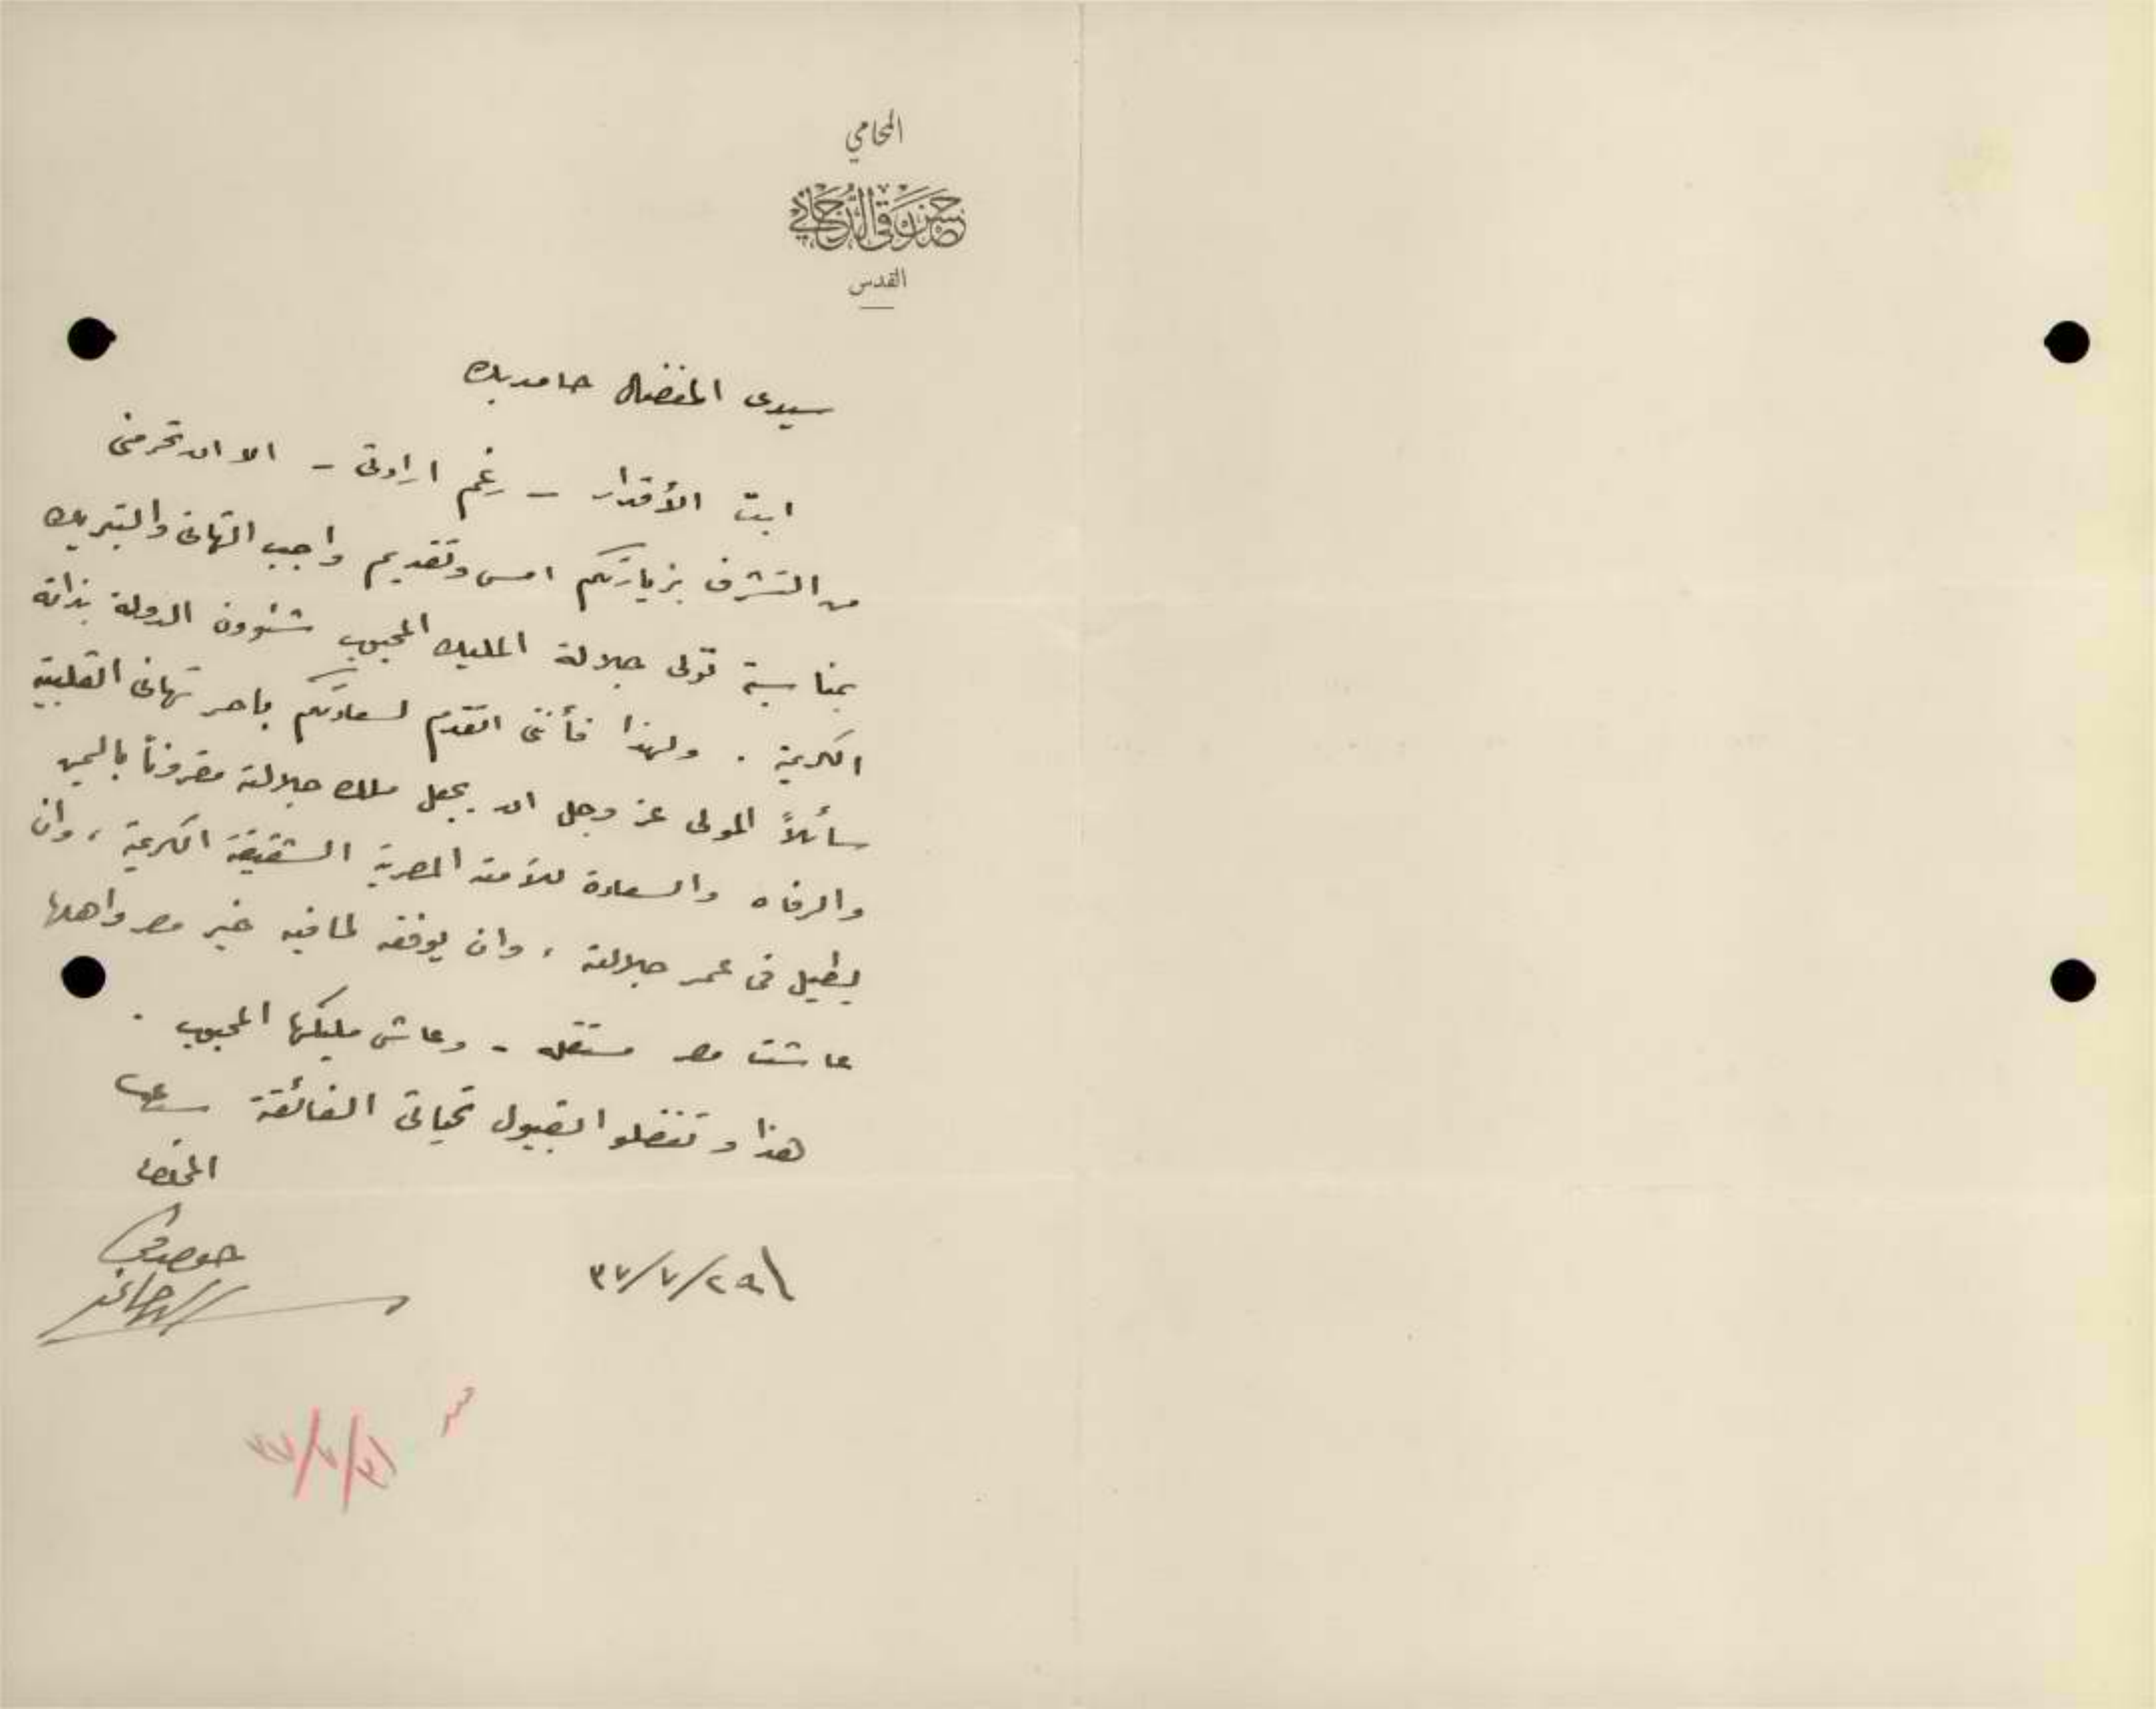 المحامي
حسن صدقي الدجاني
القدس
سيدى المفضال حامد بك
ابت الأقدار - رغم ارادتى - الا ان تحرمنى
من التشرف بزيارتكم امس وتقديم واجب التهانى والتبريك
بمناسبة تولى جلالة المليك المحبوب شئوون الدولة بذاته
الكريمة . ولهذا فأننى اتقدم لسعادتكم باحر تهانى القلبية
سائلاً المولى عز وجل ان يجعل ملك جلالته مقروناً باليمن
والرفاه والسعادة للأمة المصرية الشقيقة الكريمة ، وان
يطيل فى عمر جلالته ، وان يوفقه لما فيه خير مصر واهلها
عاشت مصر مستقلة - وعاش مليكها المحبوب .
هذا وتفضلوا بقبول تحياتى الفائقة سيدى
المخلص
حسن صدقي
الدجاني
٣٧/٧/٢٩
٣٧/٧/٣١